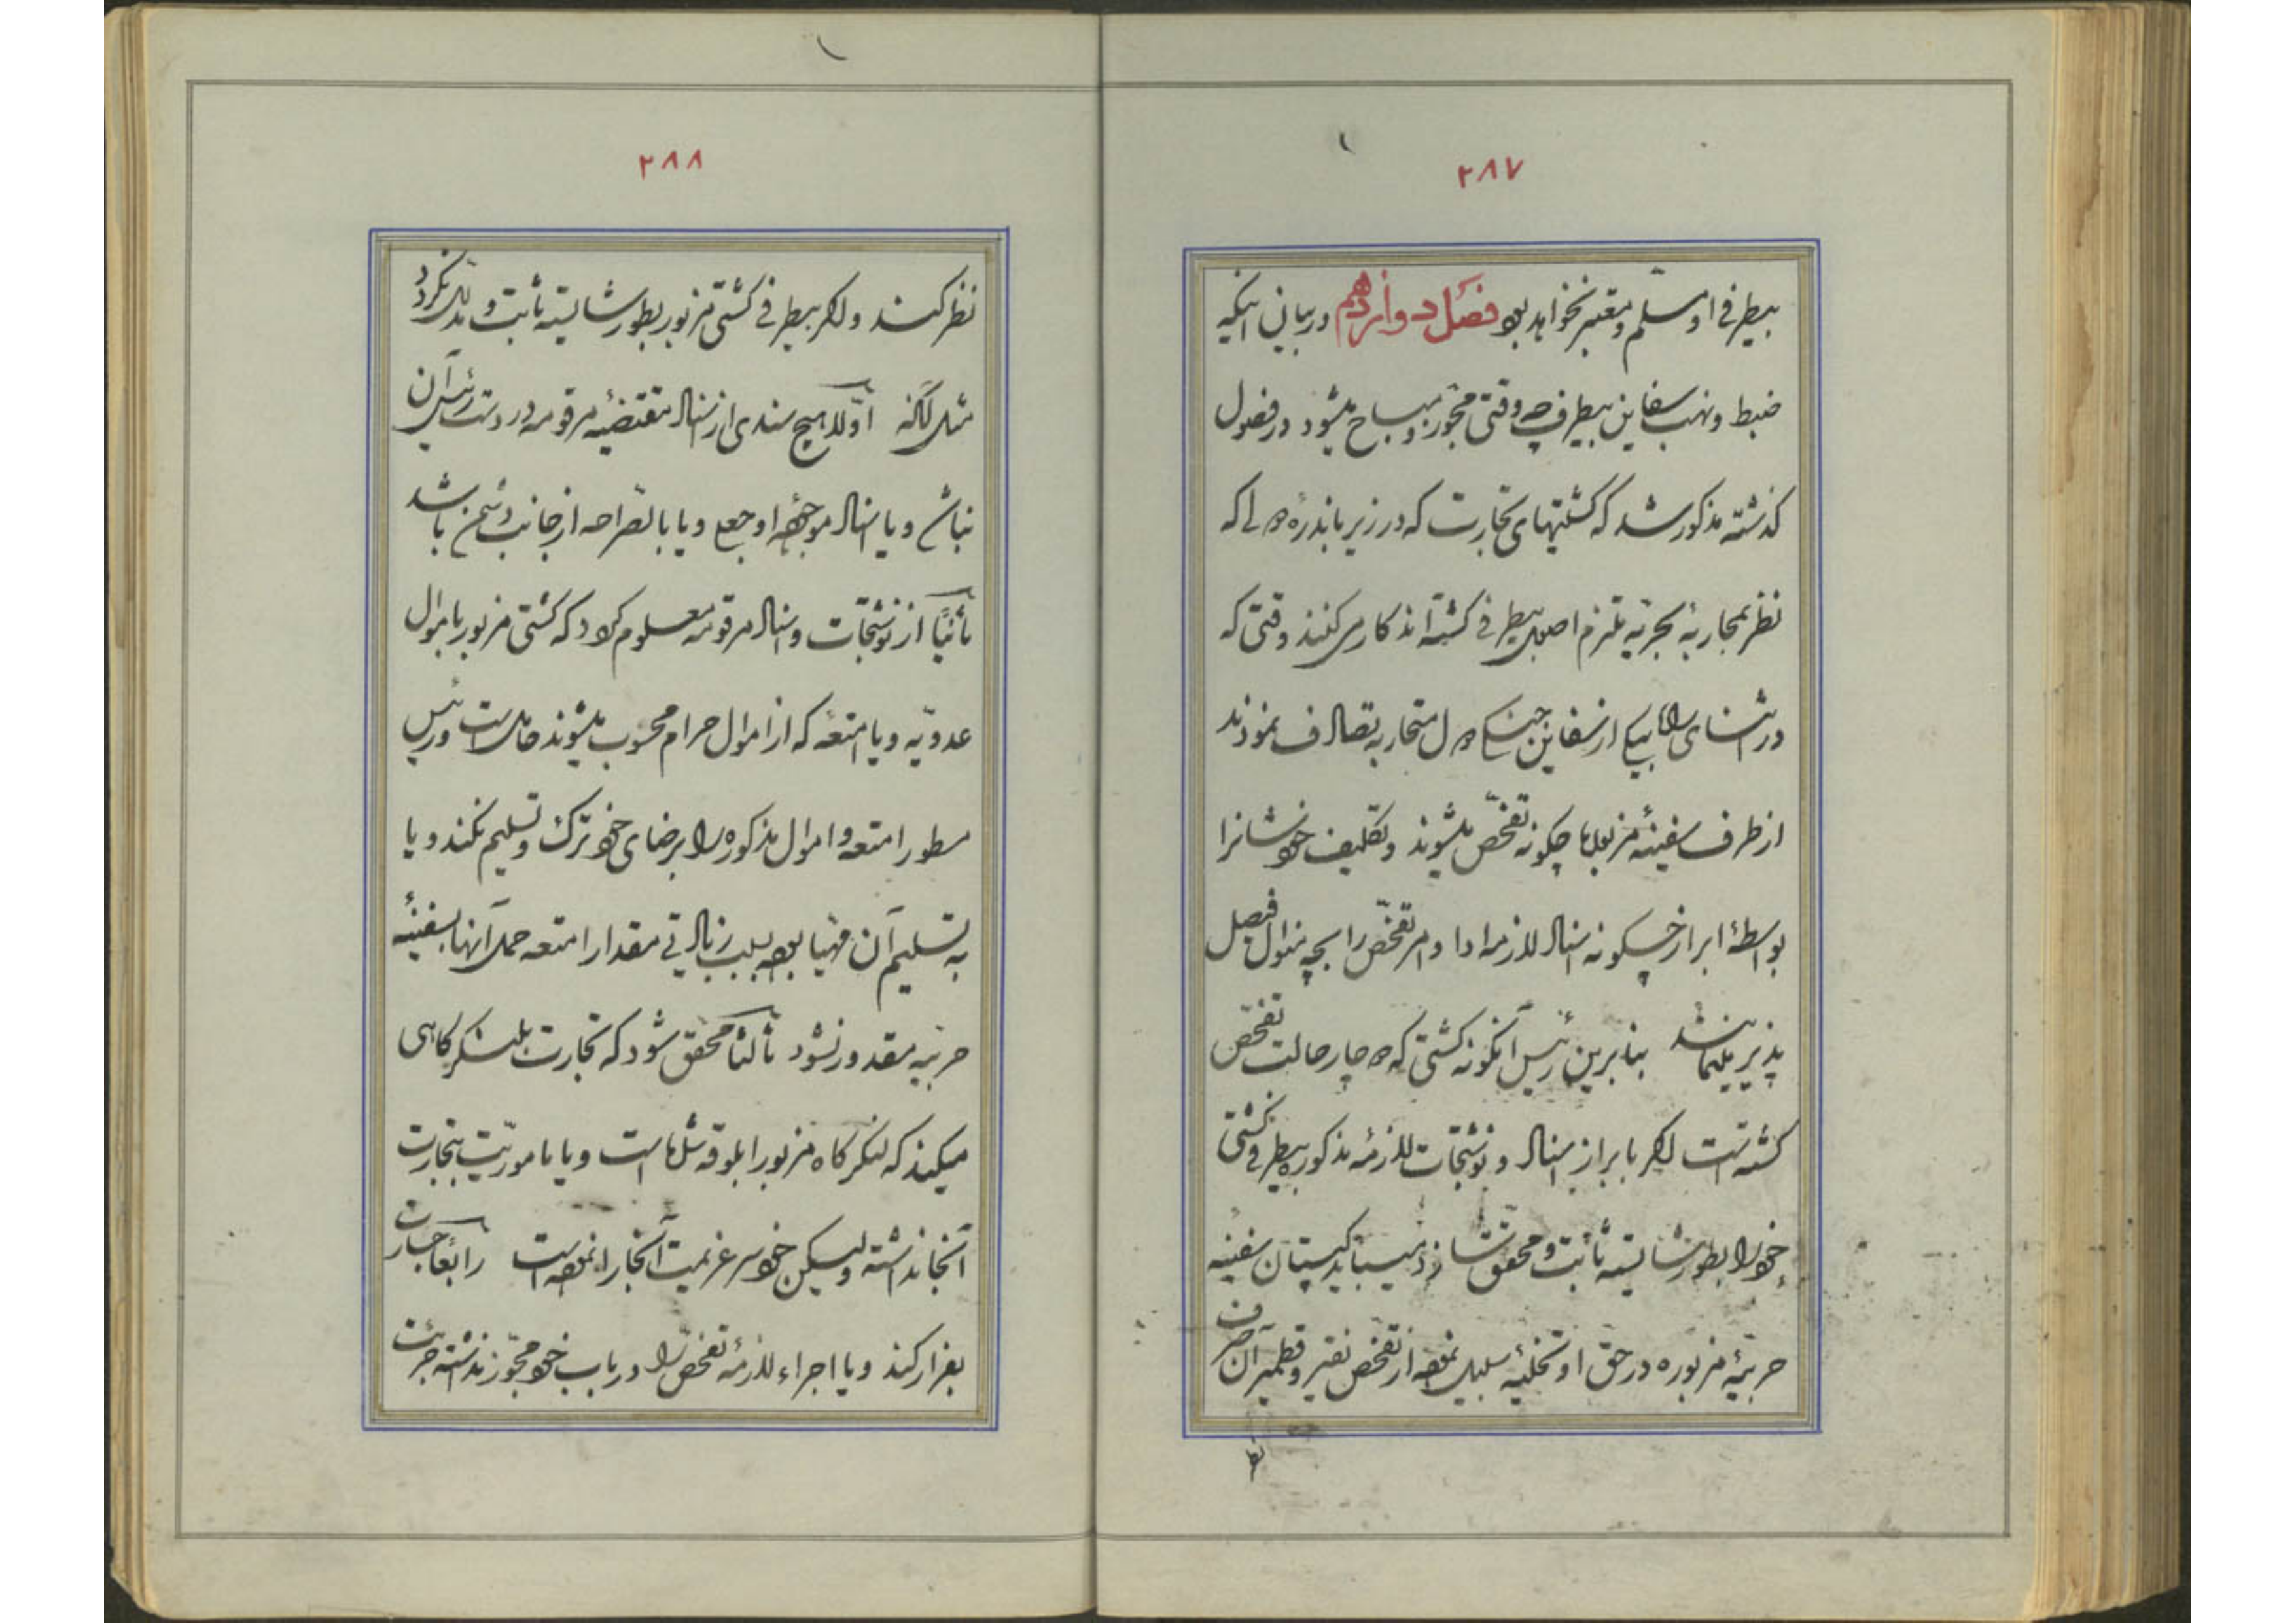 ۲۸۷
بیطرفی او مسلّم و معتبر نخواهد بود فصل دوازدهم در بیان اینکه
ضبط و نهب سفاین بیطرف چه وقتی مجوّز و مباح میشود در فصول
گذشته مذکور شد که کشتیهای تجارت که در زیر باندرهٔ دولی که
نظر بمحاربهٔ بحریّه ملتزم اصول بیطرفی گشته‌اند کار می‌کنند وقتی که
در اثنای راه بیکی از سفاین جنگی دول متحاربه تصادف نمودند
از طرف سفینهٔ مزبوره چگونه تفحّص میشوند و تکلیف خودشانرا
بواسطهٔ ابراز چگونه اسناد لازمه ادا و امر تفحّص را بچه منوال فیصل
پذیر مینمایند بنابرین رئیس آنگونه کشتی که دچار حالت تفحّص
گشته است اگر با ابراز اسناد و نوشتجات لازمهٔ مذکوره بیطرفی کشتی
خود را بطور شایسته ثابت و محقق سازد میباید کپیتان سفینهٔ
حربیّهٔ مزبوره در حق او تخلیهٔ سبیل نموده از تفحّص نقیر و قطمیر آن صرف
نظر
۲۸۸
نظر کند و اگر بیطرفی کشتی مزبور بطور شایسته ثابت و مدلل نگردد
مثل آنکه اوّلا هیچ سندی از اسناد مقتضیهٔ مرقومه در دست رئیس آن
نباشد و یا اسناد موجوده او جعلی و یا بالصراحه از جانب دشمن باشد
ثانیاً از نوشتجات و اسناد مرقومه معلوم گردد که کشتی مزبور باموال
عدویّه و یا امتعهٔ که از اموال حرام محسوب میشوند حامل است و رئیس
مسطور امتعه و اموال مذکوره را برضای خود ترک و تسلیم نکند و یا
به تسلیم آن مهیّا بوده بسبب زیادتی مقدار امتعه حمل آنها بسفینهٔ
حربیّه مقدور نشود ثالثاً محقق شود که تجارت بلنگرگاهی
میکند که لنگرگاه مزبور ابلوقه شده است و یا مامورّیت بتجارت
آنجا نداشته ولیکن خودسر عزیمت آنجا را نموده است رابعاً جسارت
بفرار کند و یا اجراء لازمهٔ تفحّص را در باب خود مجوّز نداشته جرئت